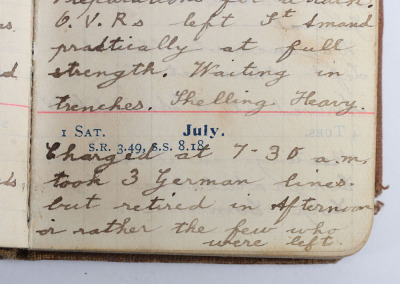 Preparations for attack.
Q.V.Rs left St Amand
practically at full
strength. Waiting in
trenches. Shelling Heavy.
1 SAT. July.
S.R. 3.49, S.S. 8.18
Charged at 7-30 a.m,
took 3 German lines.
but retired in Afternoon
or rather the few who
were left.